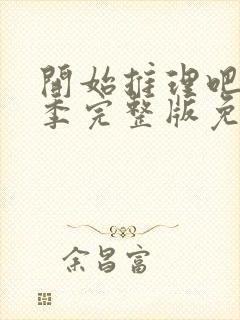 開始推理吧
季完整版免
余昌富